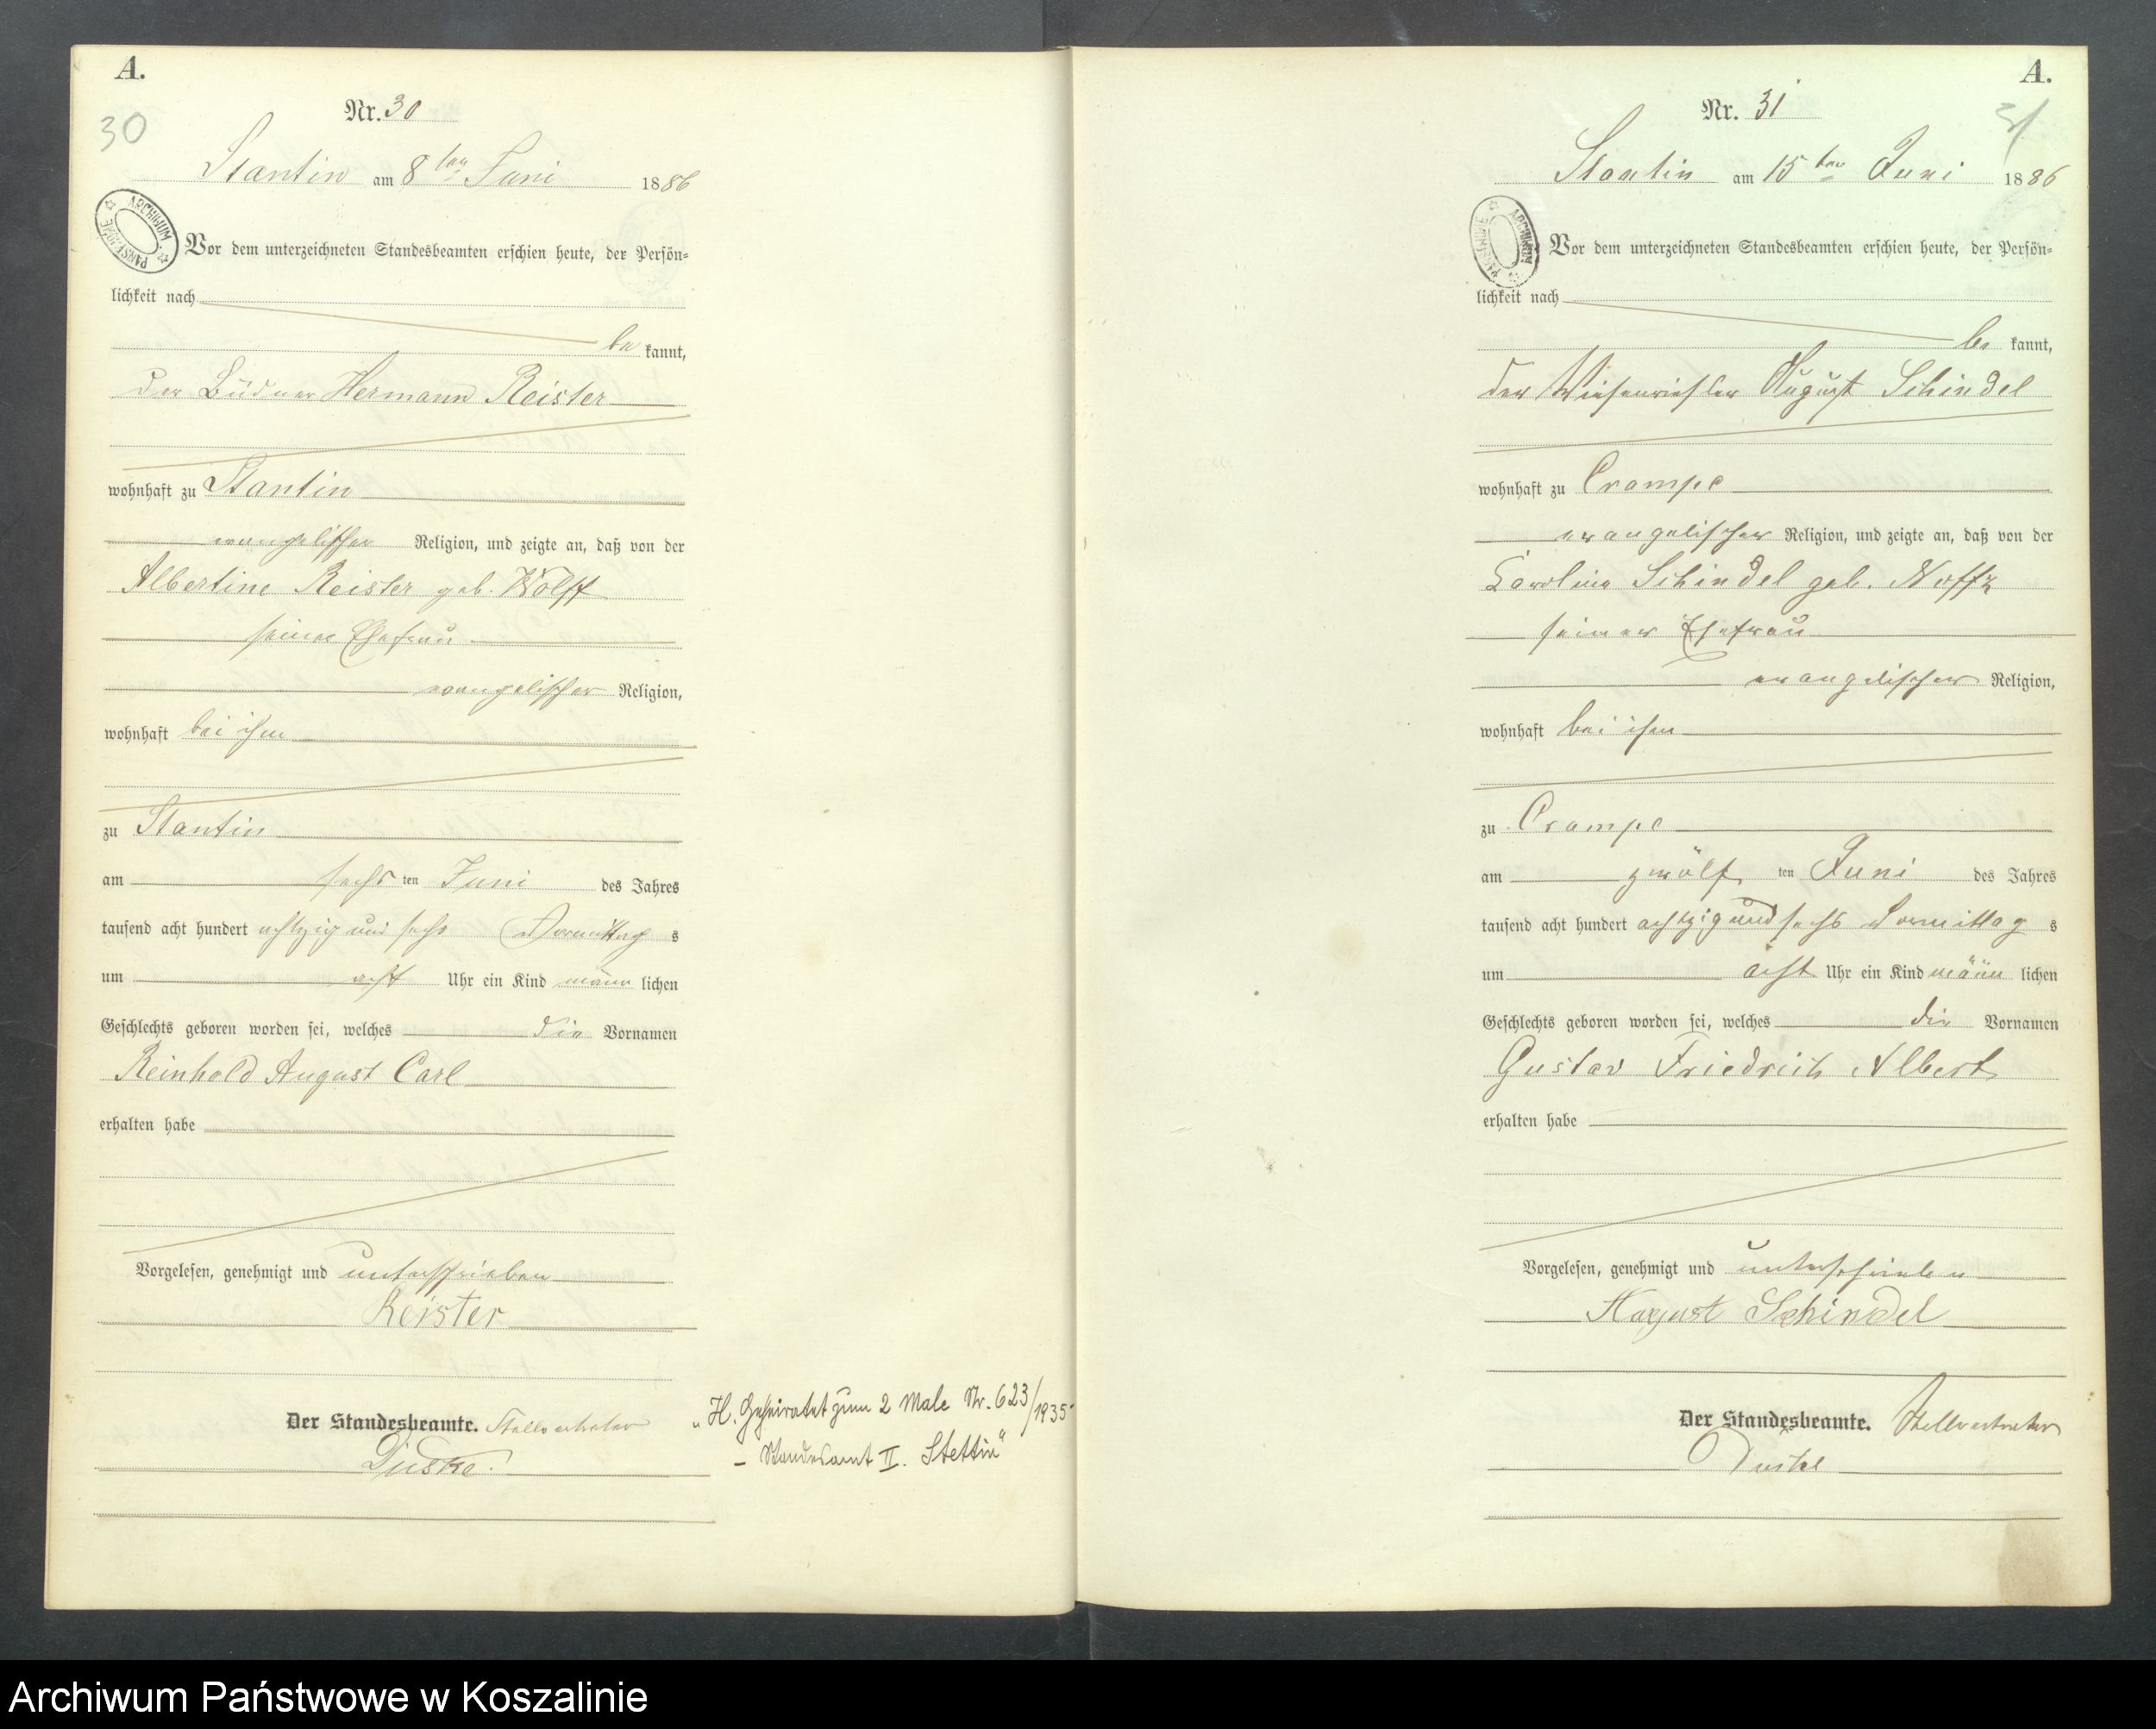 A.
Nr. 30
30
Stantin am 8ten Juni 1886
ARCHIWUM PAŃSTWOWE
Vor dem unterzeichneten Standesbeamten erschien heute, der Persön-
lichkeit nach
be kannt,
der Büdner Hermann Reister
wohnhaft zu Stantin
evangelischer Religion, und zeigte an, daß von der
Albertine Reister geb. Wolff
seiner Ehefrau
evangelischer Religion,
wohnhaft bei ihm
zu Stantin
am sechs ten Juni des Jahres
tausend acht hundert achtzig und sechs Vormittag s
um acht Uhr ein Kind männ lichen
Geschlechts geboren worden sei, welches die Vornamen
Reinhold August Carl
erhalten habe
Vorgelesen, genehmigt und unterschrieben
Reister
Der Standesbeamte. Stellvertreter
„H. Geheiratet zum 2 Male Nr. 623/1935-
– Standesamt II. Stettin“
A.
Nr. 31
31
Stantin am 15ten Juni 1886
ARCHIWUM PAŃSTWOWE
Vor dem unterzeichneten Standesbeamten erschien heute, der Persön-
lichkeit nach
be kannt,
der August Schindel
wohnhaft zu Crampe
evangelischer Religion, und zeigte an, daß von der
Caroline Schindel geb. Noffz
seiner Ehefrau
evangelischer Religion,
wohnhaft bei ihm
zu Crampe
am zwölf ten Juni des Jahres
tausend acht hundert achtzig und sechs Vormittag s
um acht Uhr ein Kind männ lichen
Geschlechts geboren worden sei, welches die Vornamen
Gustav Friedrich Albert
erhalten habe
Vorgelesen, genehmigt und unterschrieben
August Schindel
Der Standesbeamte. Stellvertreter
Archiwum Państwowe w Koszalinie